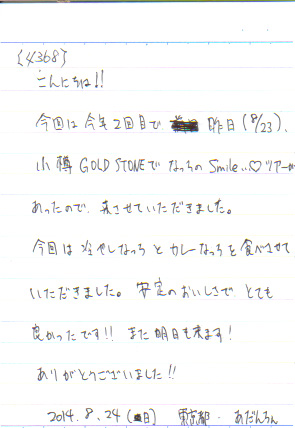 {4368}
こんにちは!!
今回は今年2回目で 昨日(8/23)、
小樽GOLD STONEで なっちの Smile...♡ツアーが
あったので、来させていただきました。
今回は冷やしなっちとカレーなっちを食べさせて
いただきました。安定のおいしさで とても
良かったです!! また明日も来ます!
ありがとうございました!!
2014.8.24(日) 東京都・あだんちん